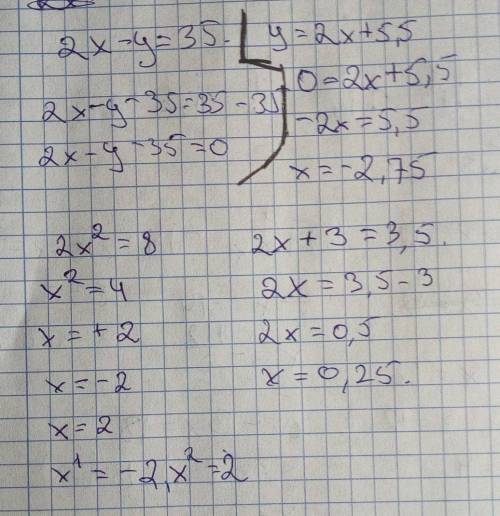 2x-y=35.
2x-y-35=35-35
2x-y-35=0
y=2x+5,5
0=2x+5,5
-2x=5,5
x=-2,75
2x²=8
x²=4
x=+2
x=-2
x=2
x¹=-2, x²=2
2x+3=3,5.
2x=3,5-3
2x=0,5
x=0,25.